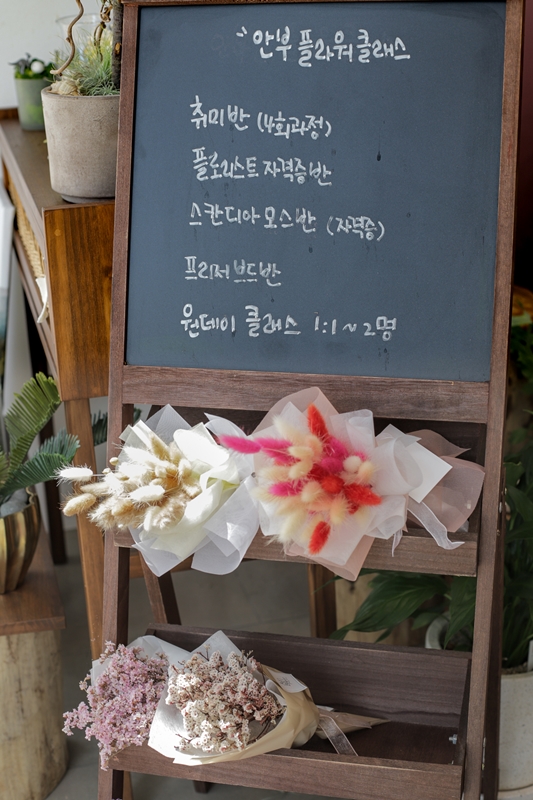 안부 플라워 클래스
취미반 (4회과정)
플로리스트 자격증반
스칸디아모스반 (자격증)
프리저브드반
원데이 클래스 1:1~2명